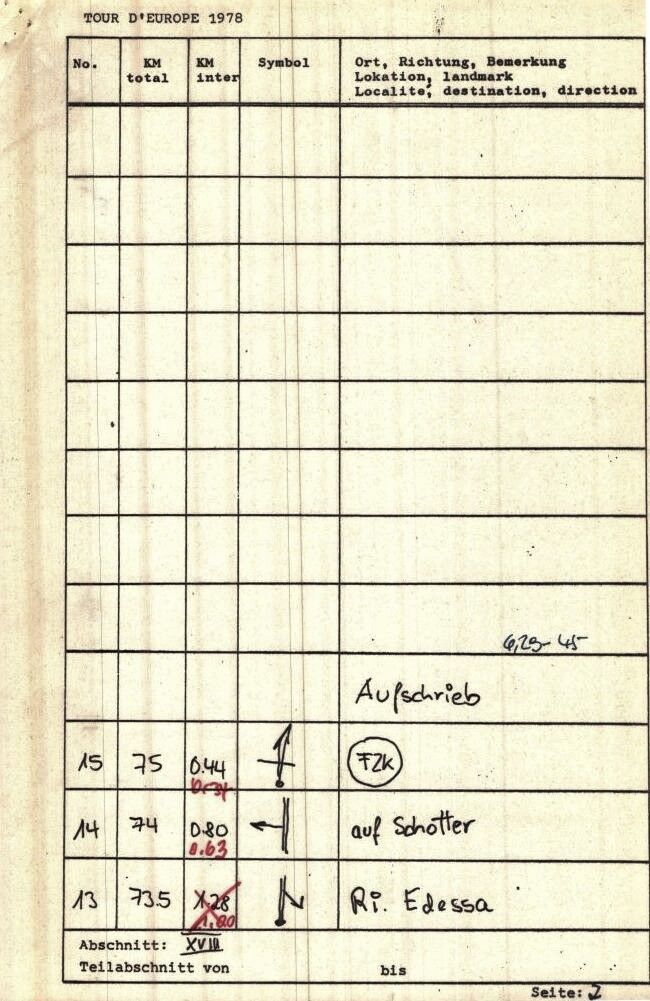 TOUR D'EUROPE 1978
No. KM total KM inter Symbol Ort, Richtung, Bemerkung
Lokation, landmark
Localite, destination, direction
6,29- 45
Aufschrieb
15 75 0.44 FZK
14 74 0.80 auf Schotter
0.63
13 73.5 Ri. Edessa
1,00
Abschnitt: XVIII
Teilabschnitt von bis
Seite: 2